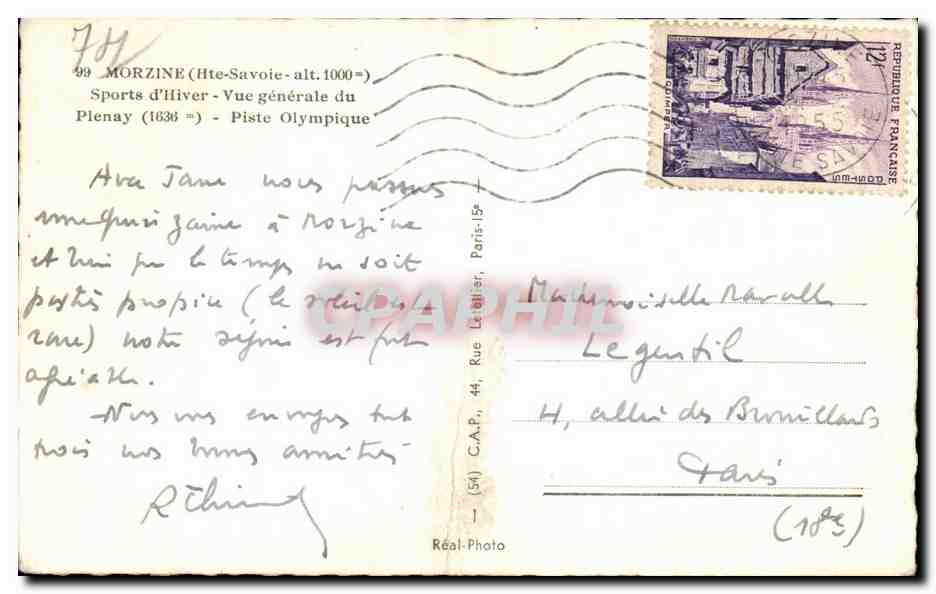 74
99 MORZINE (Hte-Savoie - alt. 1000 m)
Sports d'Hiver - Vue générale du
Plenay (1636 m) - Piste Olympique
Avec Jane nous passons
une quinzaine à Morzine
et bien que le temps ne soit
pas très propice (le soleil est
rare) notre séjour est fort
agréable.
Nous vous envoyons tout
trois nos bonnes amitiés
(54) C.A.P., 44, Rue Letellier, Paris-15e
Réal-Photo
RÉPUBLIQUE FRANÇAISE
POSTES
12f
QUIMPER
1955
HTE SAVOIE
Mademoiselle
Legentil
4, allée des Brouillards
Paris
(18e)
CPAPHIL